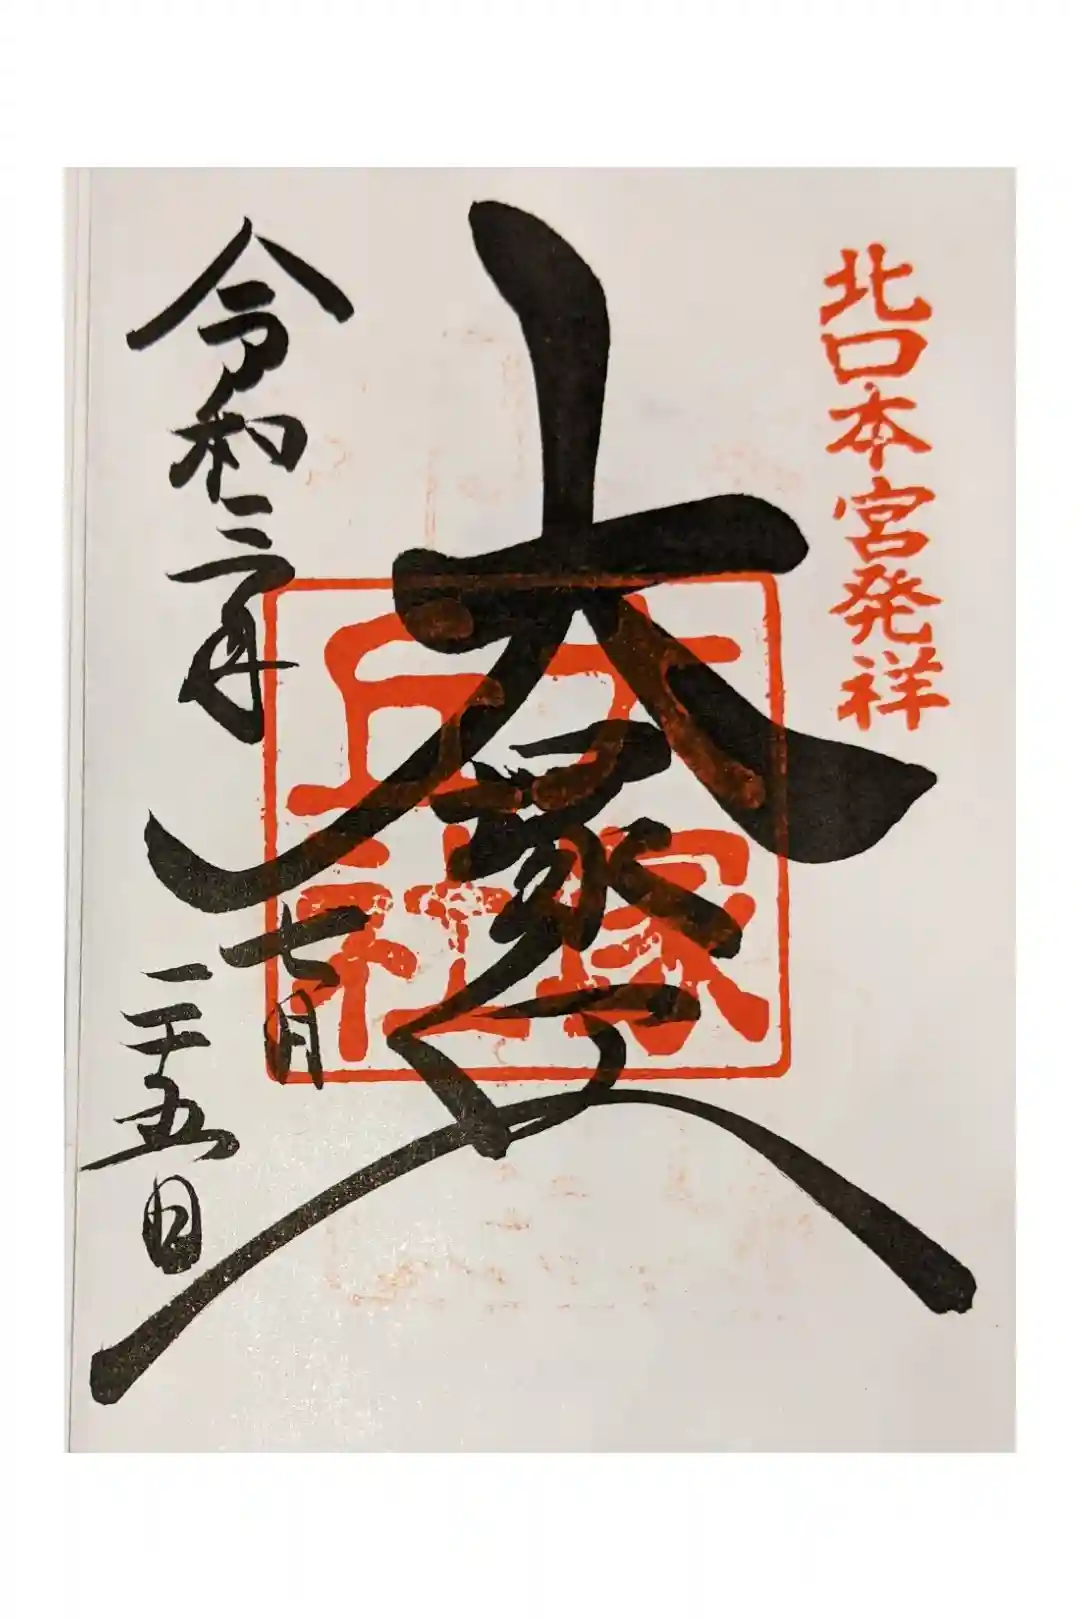 北口本宮発祥
大塚丘
大塚
丘社
令和三年
七月
二十五日